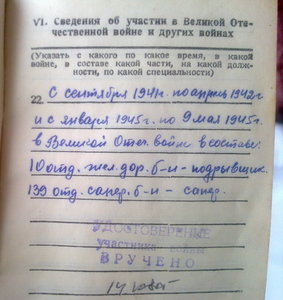 VI. Сведения об участии в Великой Оте-
чественной войне и других войнах
(Указать с какого по какое время, в какой
войне, в составе какой части, на какой долж-
ности, по какой специальности)
22. С сентября 1941г. по апрель 1942г
и с января 1945г. по 9 мая 1945г.
в Великой Отеч. войне в составе:
10 отд. жел. дор. б-н - подрывщик.
139 отд. сапер. б-н - сапер.
УДОСТОВЕРЕНИЕ
участника войны
ВРУЧЕНО